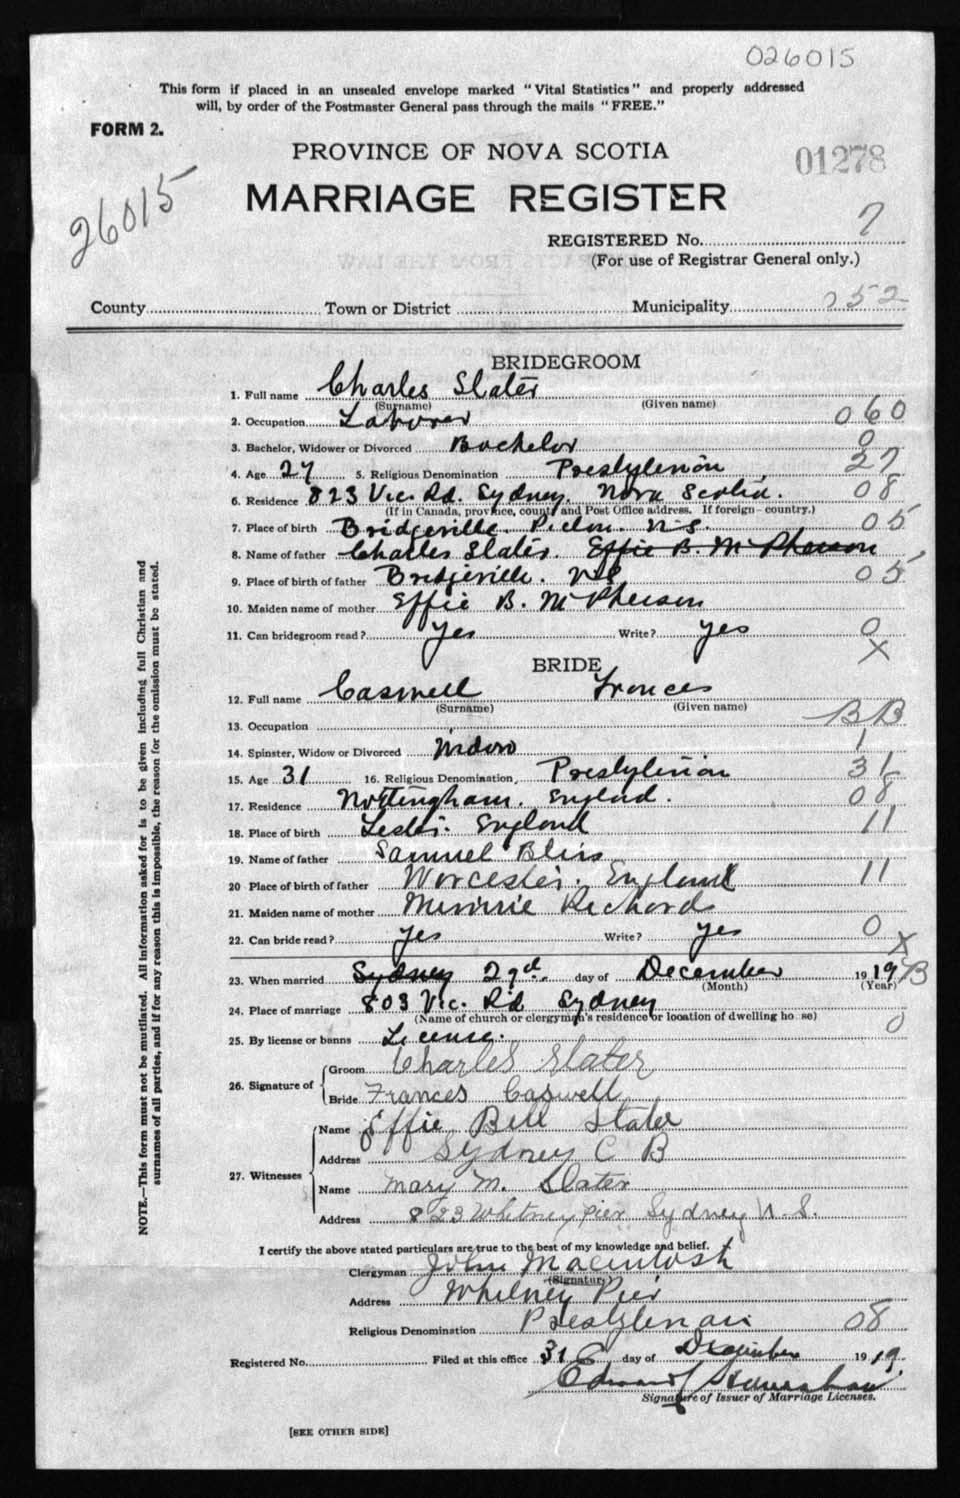 026015
This form if placed in an unsealed envelope marked "Vital Statistics" and properly addressed
will, by order of the Postmaster General pass through the mails "FREE."
FORM 2.
PROVINCE OF NOVA SCOTIA
01278
26015
MARRIAGE REGISTER
REGISTERED No. 7
(For use of Registrar General only.)
County Town or District Municipality 252
BRIDEGROOM
1. Full name Charles Slater
(Surname) (Given name)
2. Occupation Laborer 060
3. Bachelor, Widower or Divorced Bachelor 0
4. Age 27 5. Religious Denomination Presbyterian 27
6. Residence 823 Vic. Rd. Sydney. Nova Scotia. 08
(If in Canada, province, county and Post Office address. If foreign—country.)
7. Place of birth Bridgeville Pictou. N.S. 05
8. Name of father Charles Slater. Effie B. McPherson
9. Place of birth of father Bridgeville. N.S. 05
10. Maiden name of mother Effie B. McPherson
11. Can bridegroom read? Yes Write? yes 0
X
BRIDE
12. Full name Caswell Frances
(Surname) (Given name)
13. Occupation BB
14. Spinster, Widow or Divorced Widow 1
15. Age 31 16. Religious Denomination, Presbyterian 31
17. Residence Nottingham. England. 08
18. Place of birth England 11
19. Name of father Samuel Bliss
20 Place of birth of father Worcester. England 11
21. Maiden name of mother Minnie Richards
22. Can bride read? yes Write? yes 0
X
23. When married Sydney 29th day of December 1919 B
(Month) (Year)
24. Place of marriage 803 Vic. Rd Sydney
(Name of church or clergymen's residence or location of dwelling house)
25. By license or banns License. 0
26. Signature of
Groom Charles Slater
Bride Frances Caswell
27. Witnesses
Name Effie Bell Slater
Address Sydney C B
Name Mary M. Slater
Address 823 Whitney Pier Sydney N.S.
I certify the above stated particulars are true to the best of my knowledge and belief.
Clergyman John Macintosh
(Signature)
Address Whitney Pier
Religious Denomination Presbyterian 08
Registered No. Filed at this office 31 day of December 1919.
Edward
Signature of Issuer of Marriage Licenses.
[SEE OTHER SIDE]
NOTE.—This form must not be mutilated. All information asked for is to be given including full Christian and
surnames of all parties, and if for any reason this is impossible, the reason for the omission must be stated.